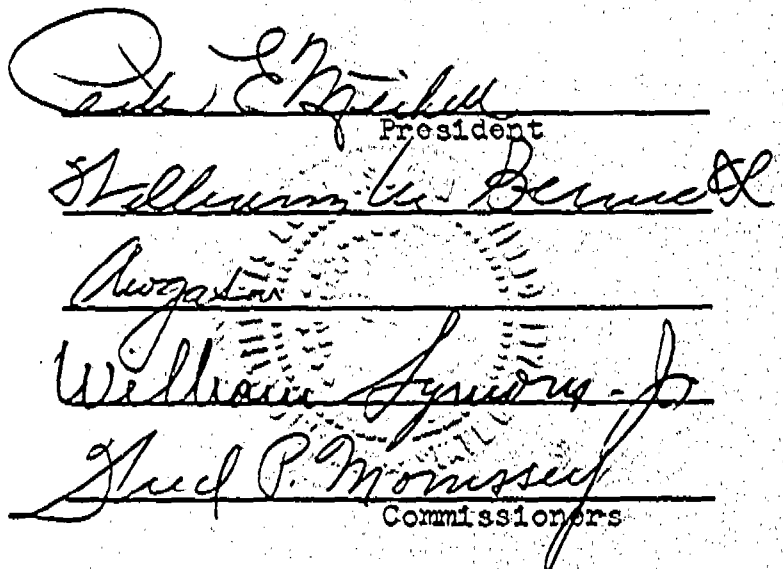 Peter E Mitchell
President
William M. Bennett
William Symons Jr
Fred P. Morrissey
Commissioners